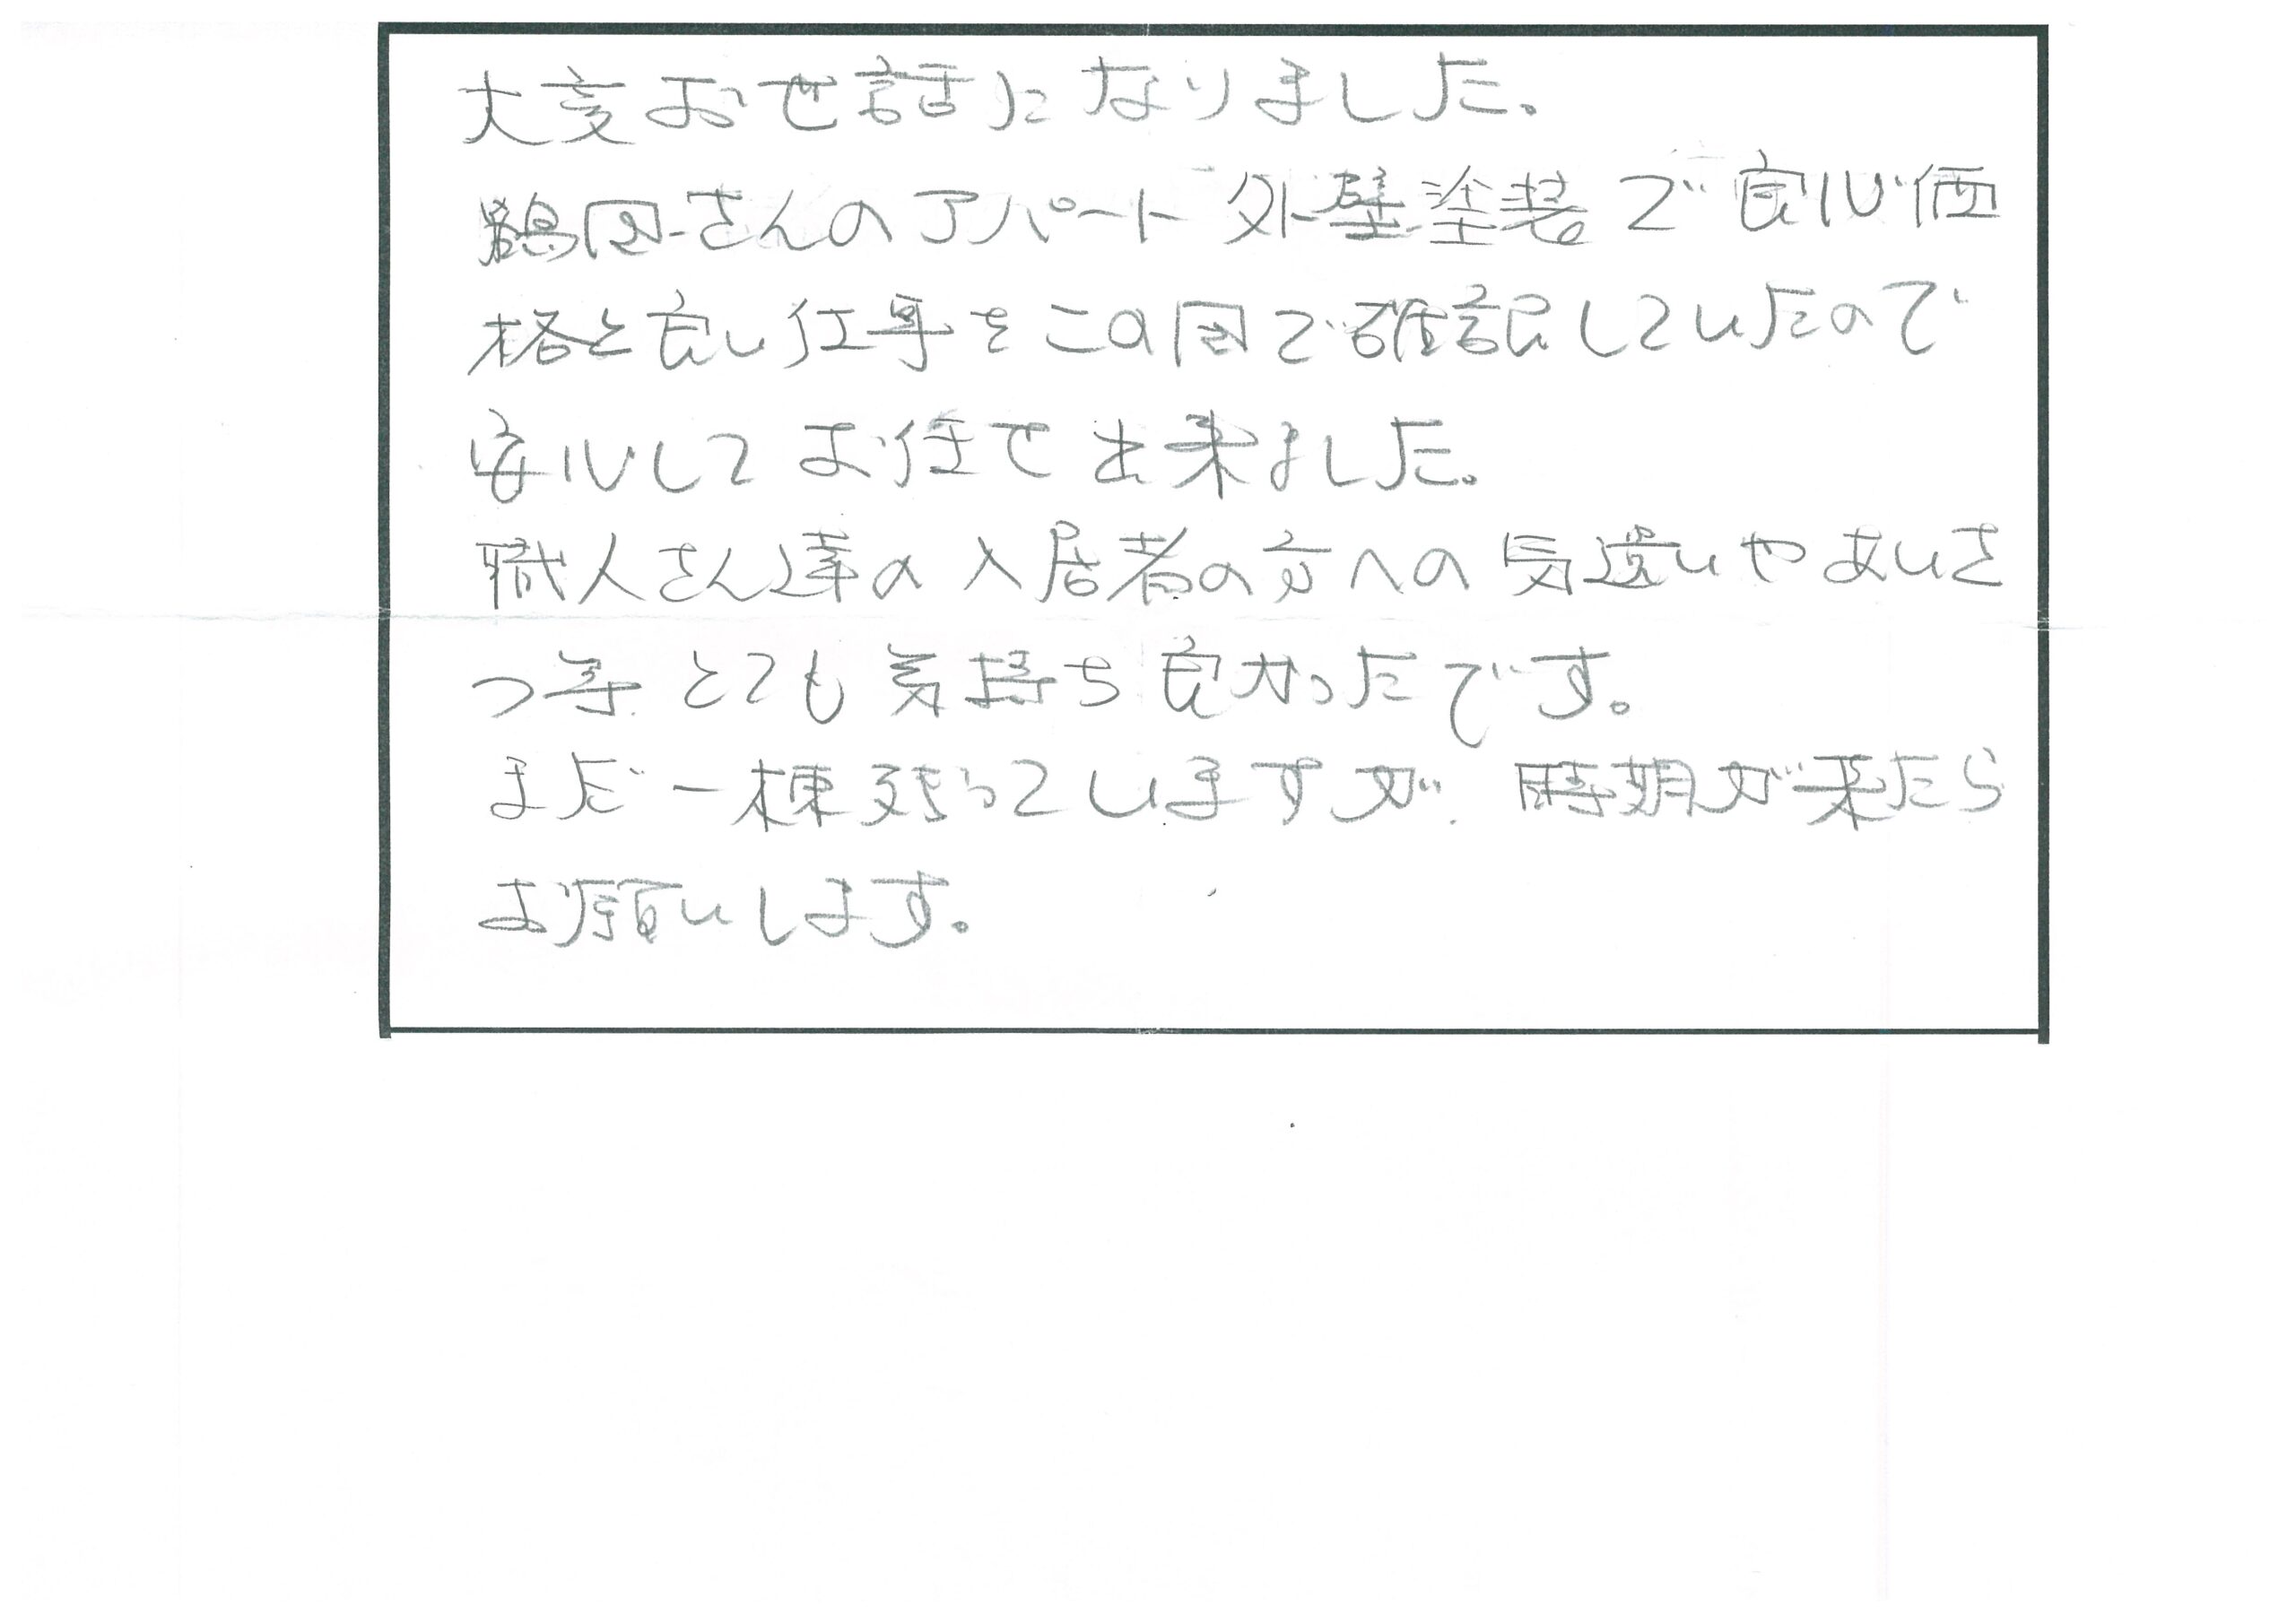 大変お世話になりました。
鶴田さんのアパート外壁塗装で良心価
格と良い仕事をこの目で確認していたので
安心してお任て出来ました。
職人さん達の入居者の方への気遣いやあいさ
つ等とても気持ち良かったです。
まだ一棟残っていますが、時期が来たら
お願いします。